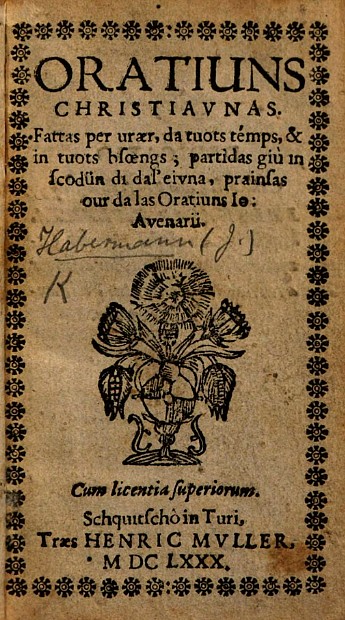 ORATIUNS
CHRISTIAVNAS.
Fattas per urær, da tuots témps, &
in tuots bsœngs; partidas giù in
scodün di dal' eivna, prainsas
our da las Oratiuns Io:
Avenarii.
Habermann (J.)
K
Cum licentia superiorum.
Schquitschò in Turi,
Træs HENRIC MVLLER,
M DC LXXX.